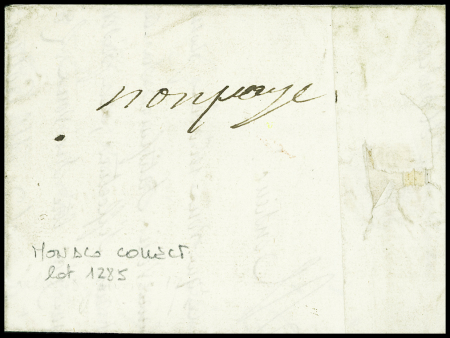 nonpaye
MONACO COLLECT
lot 1285